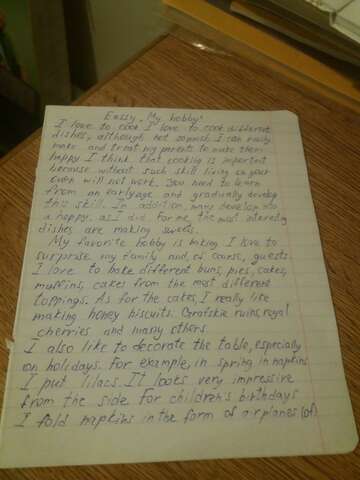 Eassy „My hobby!
I love to cook I love to cook different
dishes, although not some I can easily
make and treat my parents to make them
happy I think that cooking is important
because without such skill living on your
own will not work. You need to learn
from an early age and gradually develop
this skill. In addition, many develop into
a happy. as I did. For me, the most interesting
dishes are making sweets.
My favorite hobby is baking I love to
surprise my family and, of course, guests.
I love to bake different buns, pies, cakes,
muffins, cakes from the most different
toppings. As for the cakes, I really like
making honey biscuits. Grafskie ruins, royal
cherries and many others
I also like to decorate the table, especially
on holidays. For example, in spring in napkins
I put lilacs. It looks very impressive
from the side for children's birthdays
I fold napkins in the form of airplanes (of)